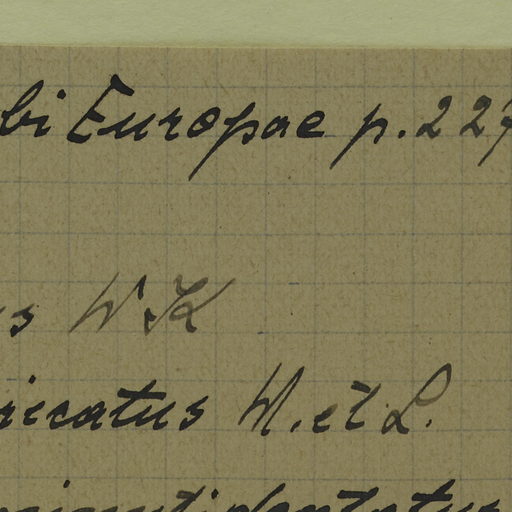 bi Europae p. 227
s W K
ricatus W. et L.